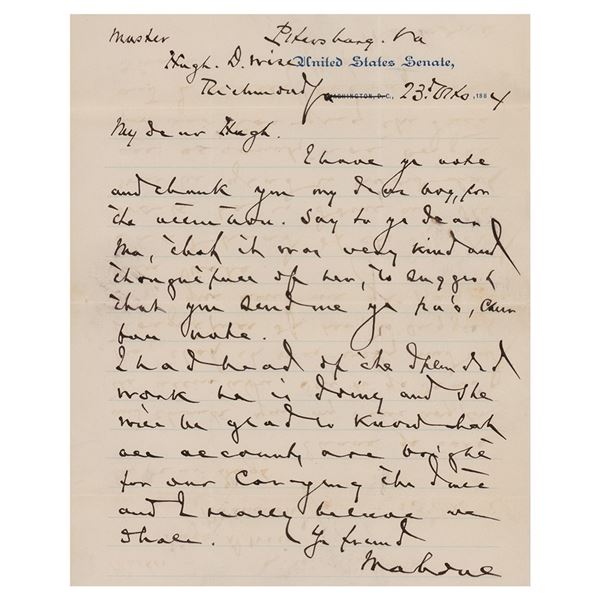 Master Petersburg. Va
Hugh. D. Wise United States Senate,
Richmond Va WASHINGTON, D.C., 23d Oct, 1884
My dear Hugh.
I have yr note
and thank you my dear boy, for
the attention. Say to yr dear
Ma, that it was very kind and
thoughtful of her, to suggest
that you send me yr pa's,
note.
I had head of the splendid
work he is doing and she
will be glad to know that
all accounts are bright
for our carrying the State
and I really believe we
shall. Yr friend
Mahone